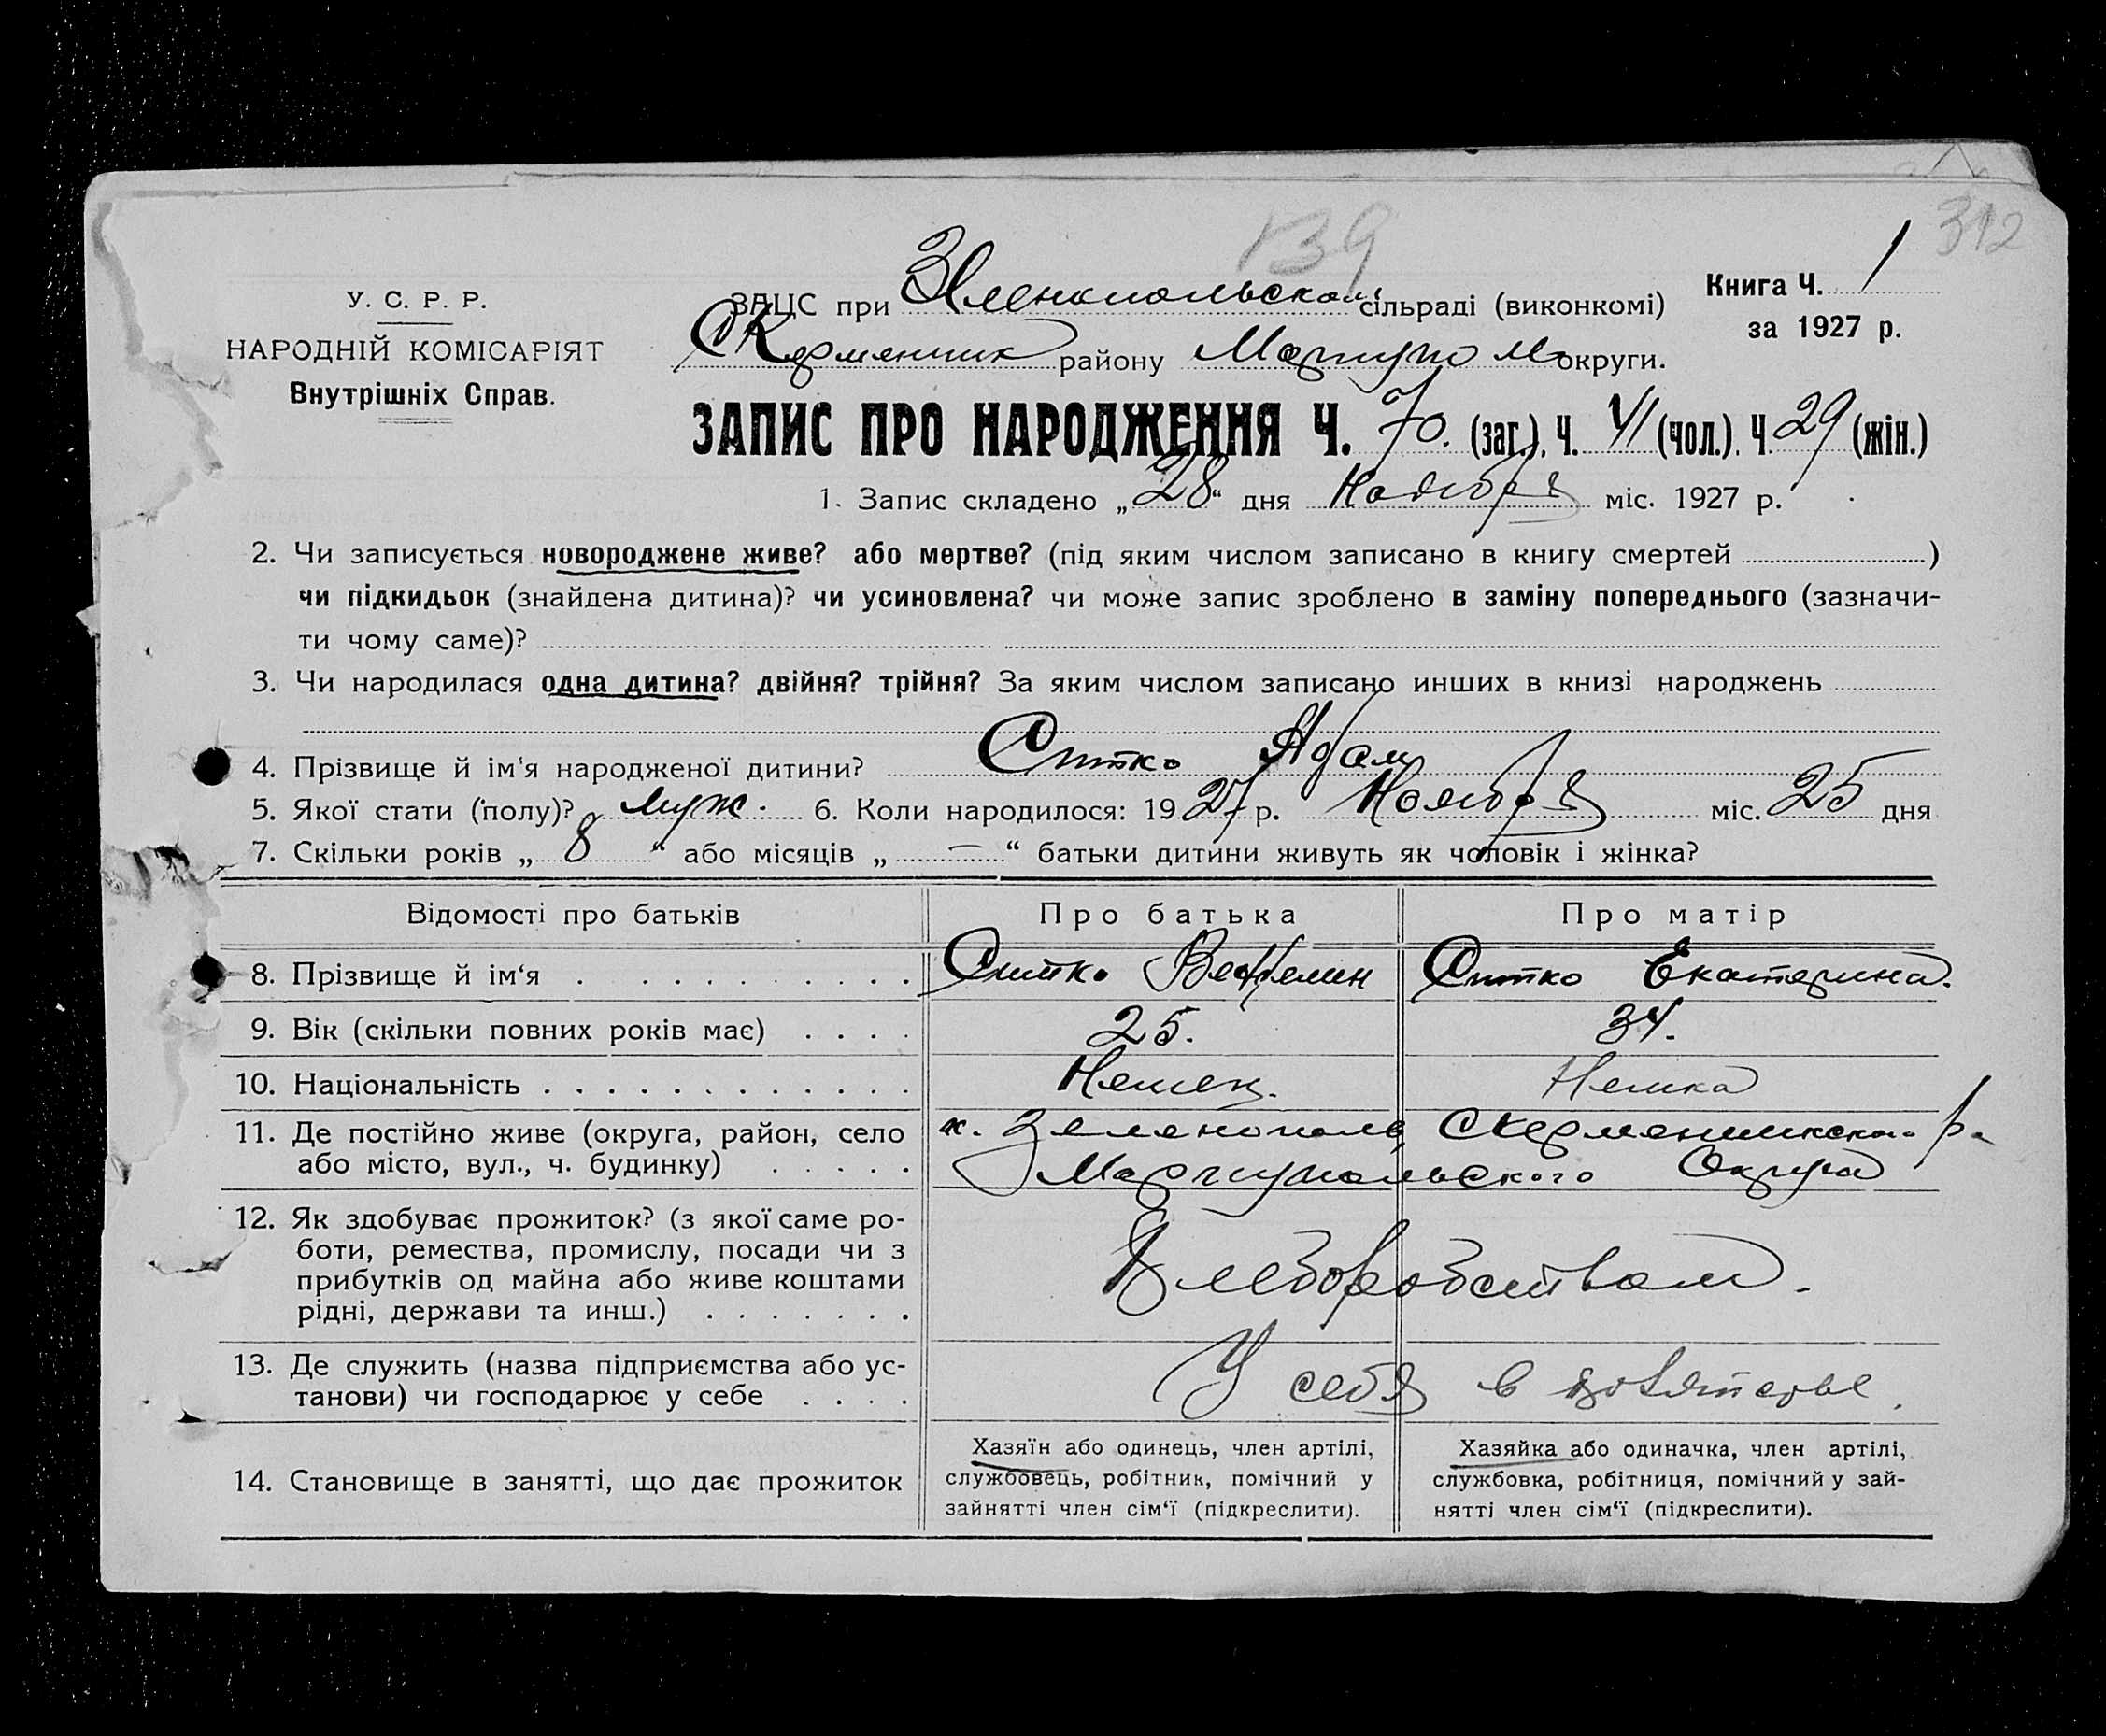 139
312
У. С. Р. Р.
НАРОДНІЙ КОМІСАРІЯТ
Внутрішніх Справ.
ЗАЦС при сільраді (виконкомі)
району Мариупол округи.
Книга Ч. 1
за 1927 р.
ЗАПИС ПРО НАРОДЖЕННЯ Ч. 70. (заг.). Ч. 41 (чол.). Ч. 29 (жін.)
1. Запис складено „28“ дня Ноября міс. 1927 р.
2. Чи записується новороджене живе? або мертве? (під яким числом записано в книгу смертей )
чи підкидьок (знайдена дитина)? чи усиновлена? чи може запис зроблено в заміну попереднього (зазначи-
ти чому саме)?
3. Чи народилася одна дитина? двійня? трійня? За яким числом записано инших в книзі народжень
4. Прізвище й ім'я народженої дитини? Ситко Адам
5. Якої стати (полу)? муж. 6. Коли народилося: 1927 р. Ноября міс. 25 дня
7. Скільки років „ 8 “ або місяців „ — “ батьки дитини живуть як чоловік і жінка?
Відомості про батьків Про батька Про матір
8. Прізвище й ім‘я Ситко Ситко Екатерина.
9. Вік (скільки повних років має) 25. 34.
10. Національність Немец. Немка
11. Де постійно живе (округа, район, село к. Зеленополе,
або місто, вул., ч. будинку) Мариупольского Округа
12. Як здобуває прожиток? (з якої саме ро-
боти, ремества, промислу, посади чи з
прибутків од майна або живе коштами Хлеборобством.
рідні, держави та инш.)
13. Де служить (назва підприємства або ус-
танови) чи господарює у себе У себя в
14. Становище в занятті, що дає прожиток
Хазяїн або одинець, член артілі,
службовець, робітник, помічний у
зайнятті член сім‘ї (підкреслити).
Хазяйка або одиначка, член артілі,
службовка, робітниця, помічний у зай-
нятті член сім‘ї (підкреслити).